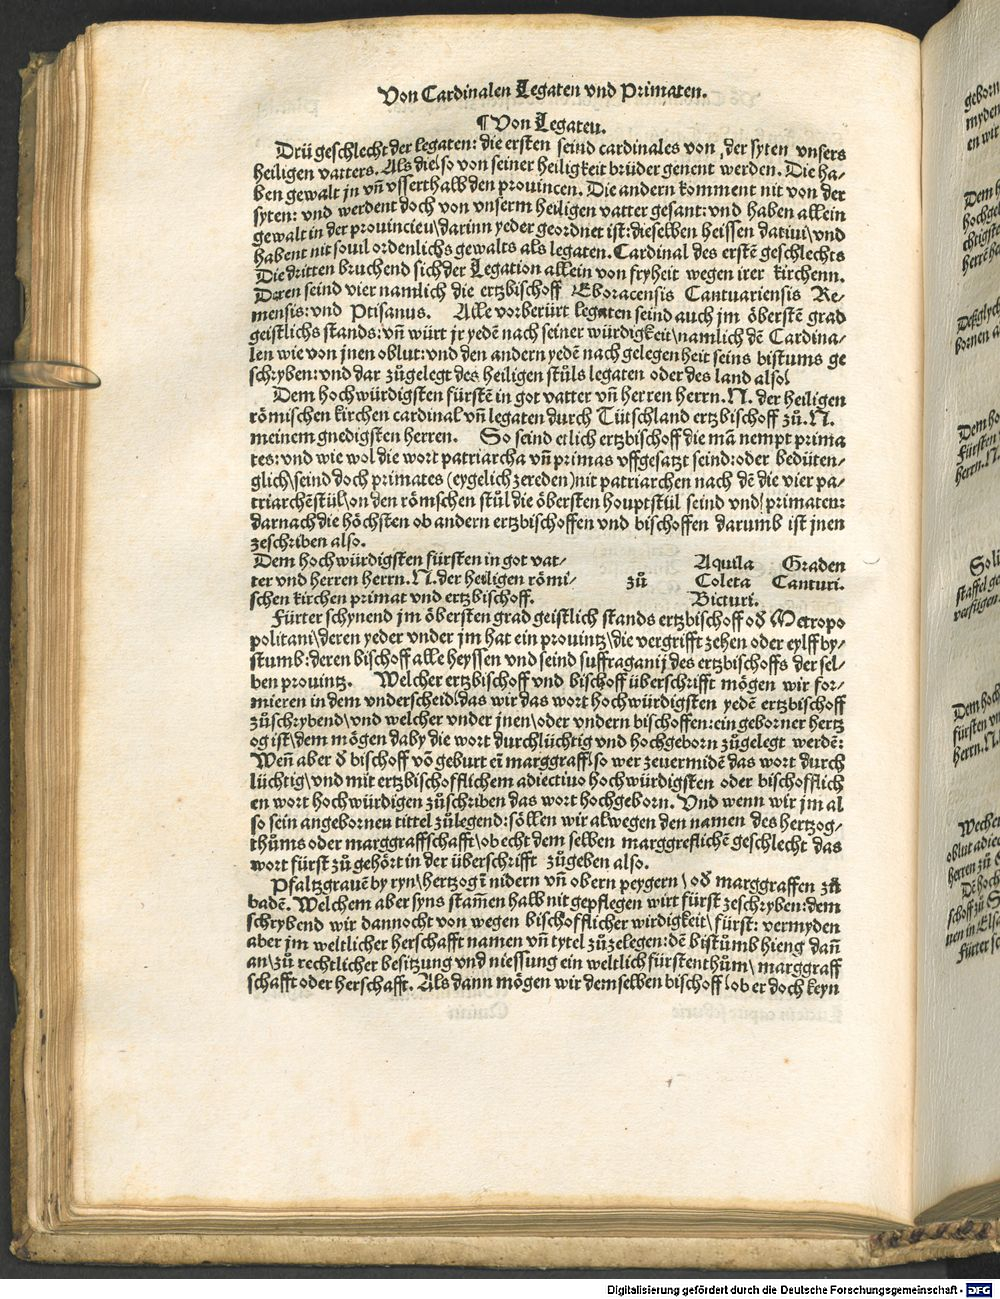 Von Cardinalen Legaten vnd Primaten.
¶ Von Legaten.
Drü geschlecht der legaten: die ersten seind cardinales von der syten vnsers
heiligen vatters. Als die so von seiner heiligkeit brüder genent werden. Die ha⸗
ben gewalt jn vñ vsserthalb den prouincen. Die andern komment nit von der
syten: vnd werdent doch von vnserm heiligen vatter gesant: vnd haben allein
gewalt in der prouincieu\darinn yeder geordnet ist: dieselben heissen datiui\vnd
habent nit souil ordenlichs gewalts als legaten. Cardinal des erstē geschlechts
Die dritten bruchend sich der Legation allein von fryheit wegen irer kirchenn.
Deren seind vier namlich die ertzbischoff Eboracensis Cantuariensis Re⸗
mensis: vnd Ptisanus. Alle vorberürt legaten seind auch jm öberstē grad
geistlichs stands: vñ würt jr yedē nach seiner würdigkeit\namlich dē Cardina⸗
len wie von jnen oblut: vnd den andern yedē nach gelegenheit seins bistums ge
schryben: vnd dar zůgelegt des heiligen stůls legaten oder des land also\
Dem hochwürdigsten fürstē in got vatter vñ herren herrn. N. der heiligen
römischen kirchen cardinal vñ legaten durch Tütschland ertzbischoff zů. N.
meinem gnedigsten herren. So seind etlich ertzbischoff die mā nempt prima
tes: vnd wie wol die wort patriarcha vñ primas vffgesatzt seind: oder bedüten⸗
glich\seind doch primates (eygelich zereden) nit patriarchen nach dē die vier pa⸗
triarchēstůl\on den römschen stůl die öbersten houptstůl seind vnd primaten:
darnach die höchsten ob andern ertzbischoffen vnd bischoffen darumb ist jnen
zeschriben also.
Dem hochwürdigsten fürsten in got vat⸗ Aquila Graden
ter vnd herren herrn. N. der heiligen römi⸗ zů Coleta Canturi.
schen kirchen primat vnd ertzbischoff. Bicturi.
Fürter schynend jm öbersten grad geistlich stands ertzbischoff oð Metropo
politani\deren yeder vnder jm hat ein prouintz\die vergrifft zehen oder eylff by⸗
stumb: deren bischoff alle heyssen vnd seind suffraganij des ertzbischoffs der sel⸗
ben prouintz. Welcher ertzbischoff vnd bischoff überschrifft mögen wir for⸗
mieren in dem vnderscheid\das wir das wort hochwürdigsten yedē ertzbischoff
zůschrybend\vnd welcher vnder jnen\oder vndern bischoffen: ein geborner hertz
og ist\dem mögen daby die wort durchlüchtig vnd hochgeborn zůgelegt werdē:
Weñ aber ð bischoff vō geburt eī marggraff\so wer zeuermidē das wort durch
lüchtig\vnd mit ertzbischofflichem adiectiuo hochwürdigsten oder bischofflich
en wort hochwürdigen zůschriben das wort hochgeborn. Vnd wenn wir jm al
so sein angebornen tittel zůlegend: söllen wir alwegen den namen des hertzog⸗
thůms oder marggraffschafft\ob echt dem selben marggreflichē geschlecht das
wort fürst zů gehört in der überschrifft zůgeben also.
Pfaltzgrauē by ryn\hertzog ī nidern vñ obern peygern \ oð marggraffen zů
badē. Welchem aber syns stam̄en halb nit gepflegen wirt fürst zeschryben: dem
schrybend wir dannocht von wegen bischofflicher wirdigkeit\fürst: vermyden
aber jm weltlicher herschafft namen vñ tytel zůzelegen: dē bistůmb hieng dañ
an\zů rechtlicher besitzung vnd niessung ein weltlich fürstenthům\ marggraff
schafft oder herschafft. Als dann mögen wir demselben bischoff\ob er doch keyn
Digitalisierung gefördert durch die Deutsche Forschungsgemeinschaft - DFG